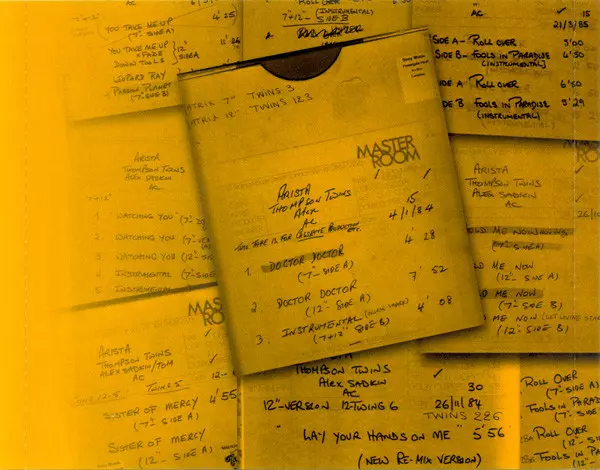 YOU TAKE ME UP
(7" SIDE A)
4' 25
YOU TAKE ME UP
+ FADE
DOWN TOOLS
12"
SIDE A
11' 26
LEOPARD RAY
PASSION PLANET
(7" SIDE B)
ROLL OVER
(INSTRUMENTAL)
7"+12" - SIDE B
AC
15
21/3/85
SIDE A - ROLL OVER 5'00
SIDE B - FOOLS IN PARADISE 4'50
(INSTRUMENTAL)
SIDE A ROLL OVER 6'50
SIDE B FOOLS IN PARADISE 5'29
(INSTRUMENTAL)
MATRIX 7" TWINS 3
MATRIX 12" TWINS 123
MASTER
ROOM
ARISTA
THOMPSON TWINS
ALEX
AC
15
4/1/84
THIS TAPE IS FOR CASSETTE PRODUCTION
ETC.
1. DOCTOR DOCTOR 4' 28
(7" SIDE A)
2. DOCTOR DOCTOR 7' 52
(12" SIDE A)
3. INSTRUMENTAL 4' 08
(7+12" SIDE B)
ARISTA
THOMPSON TWINS
ALEX SADKIN
AC
1 WATCHING YOU
2. WATCHING YOU
3 WATCHING YOU
4 INSTRUMENTAL (7" SIDE
5 INSTRUMENTAL
ARISTA
THOMPSON TWINS
ALEX SADKIN
AC
26/10
HOLD ME NOW
(7" SIDE A)
HOLD ME NOW
(12" SIDE A)
HOLD ME NOW
(7" SIDE B)
ME NOW
(12" SIDE B)
MASTER
ROOM
ARISTA
THOMPSON TWINS
ALEX SADKIN/TOM
AC
SISTER OF MERCY 4'55
(7" SIDE A)
SISTER OF MERCY
(12" SIDE A)
ARISTA
THOMPSON TWINS
ALEX SADKIN
AC
30
12" VERSION 12 TWING 6 26/11/84
TWINS 226
"LAY YOUR HANDS ON ME" 5'56
(NEW RE-MIX VERSION)
ROLL OVER
(7" SIDE A)
FOOLS IN PARAD
(7" SIDE
ROLL OVER
(12" SIDE A)
FOOLS IN PA
(12"